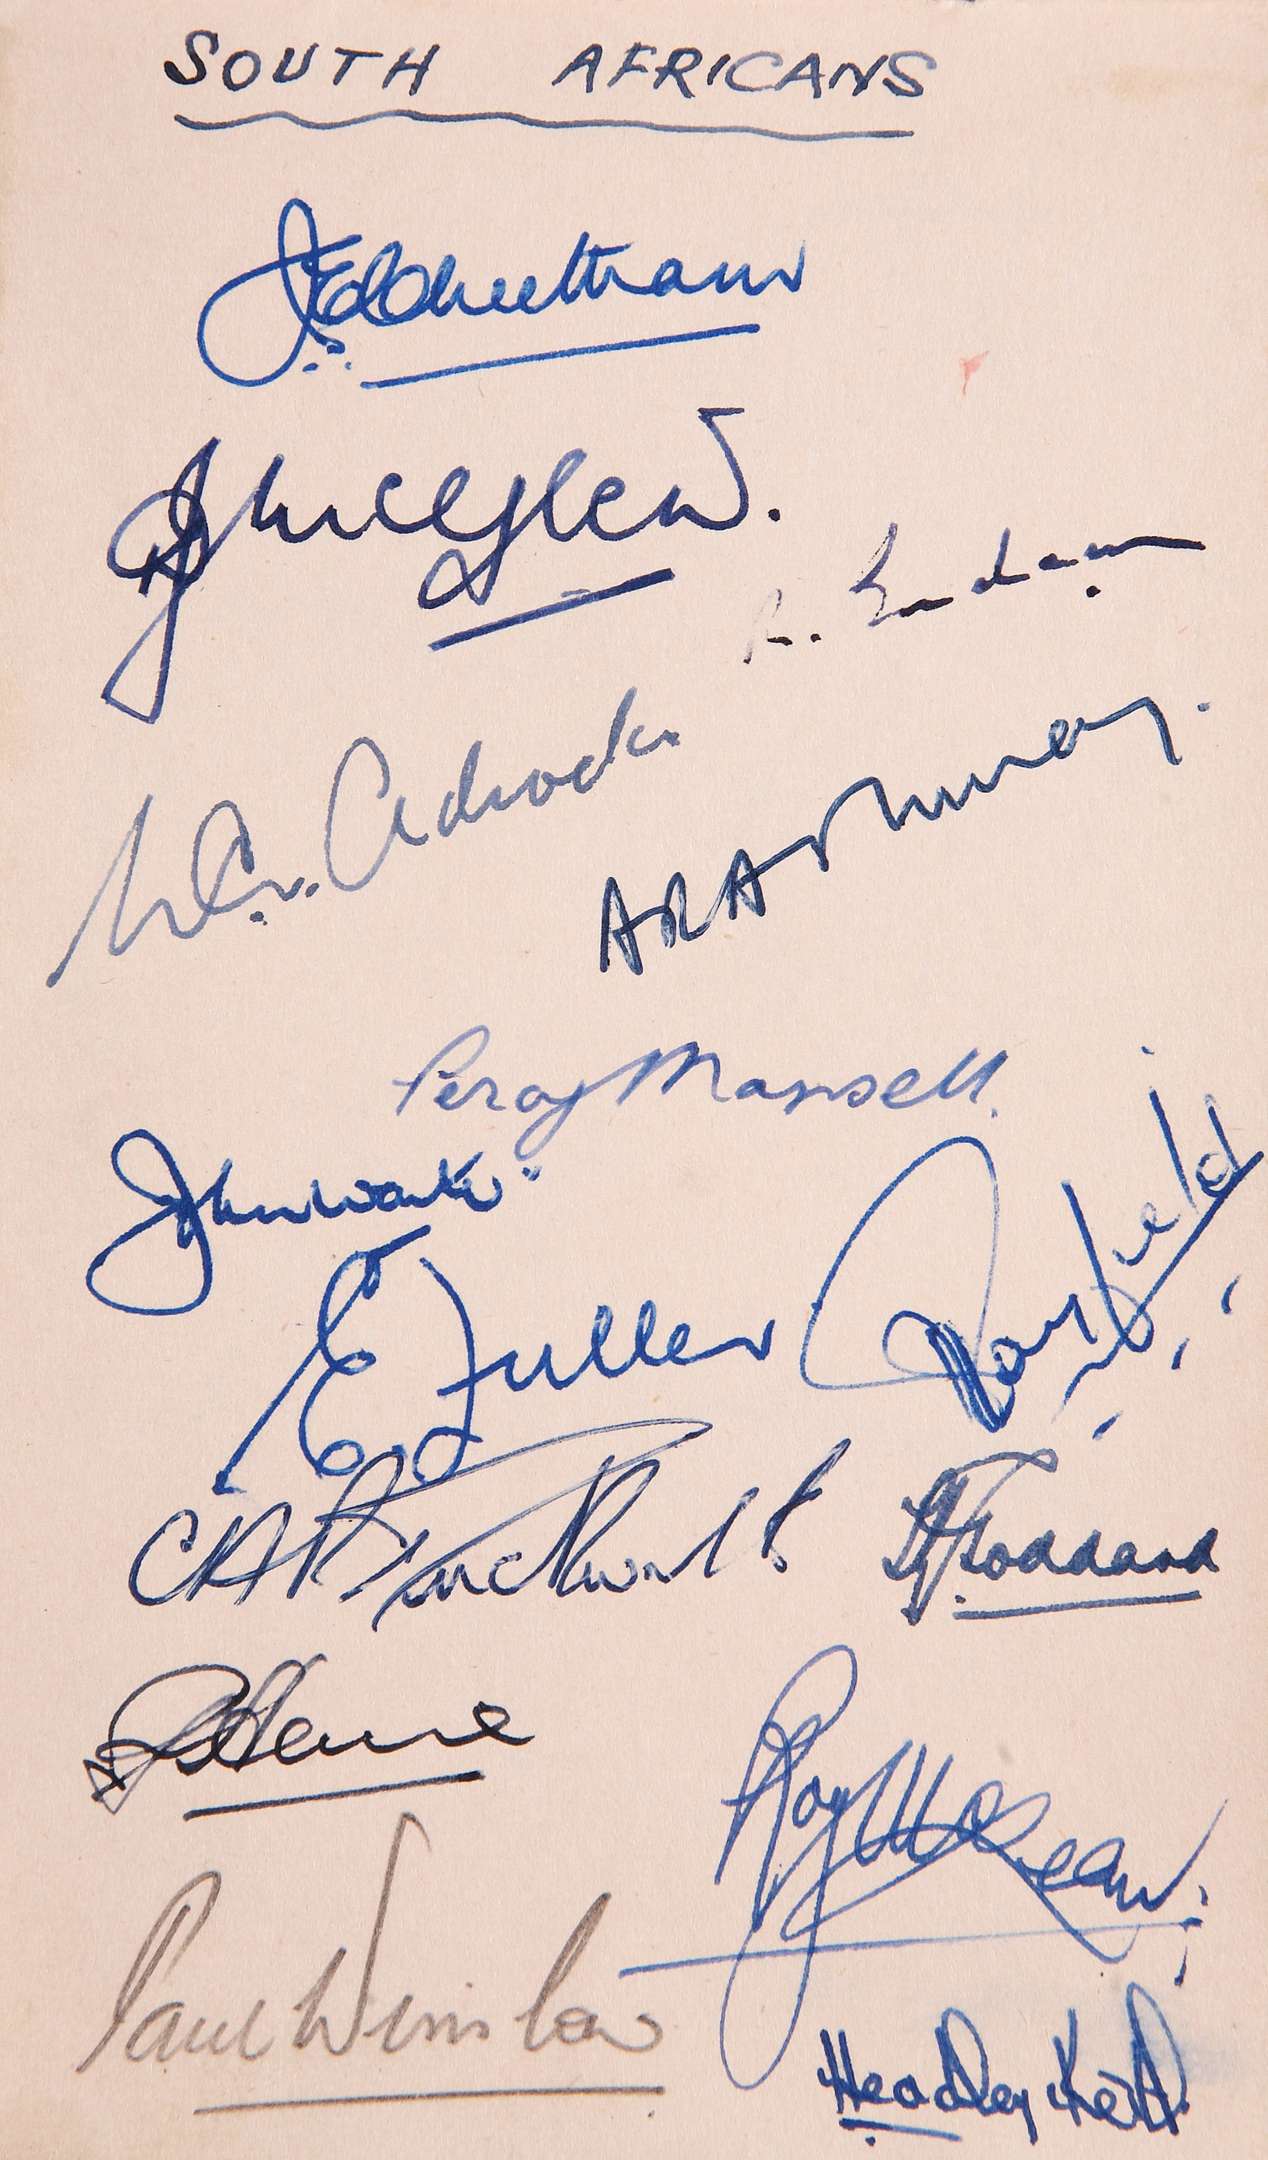 SOUTH AFRICANS
J E Cheetham
D J McGlew.
R. Endean
N. Adcock
A R A Murray.
Percy Mansell
John Waite
E Fuller
H J Tayfield
C A R Duckworth
T L Goddard
P S Heine
Roy McLean
Paul Winslow
Headley Keith